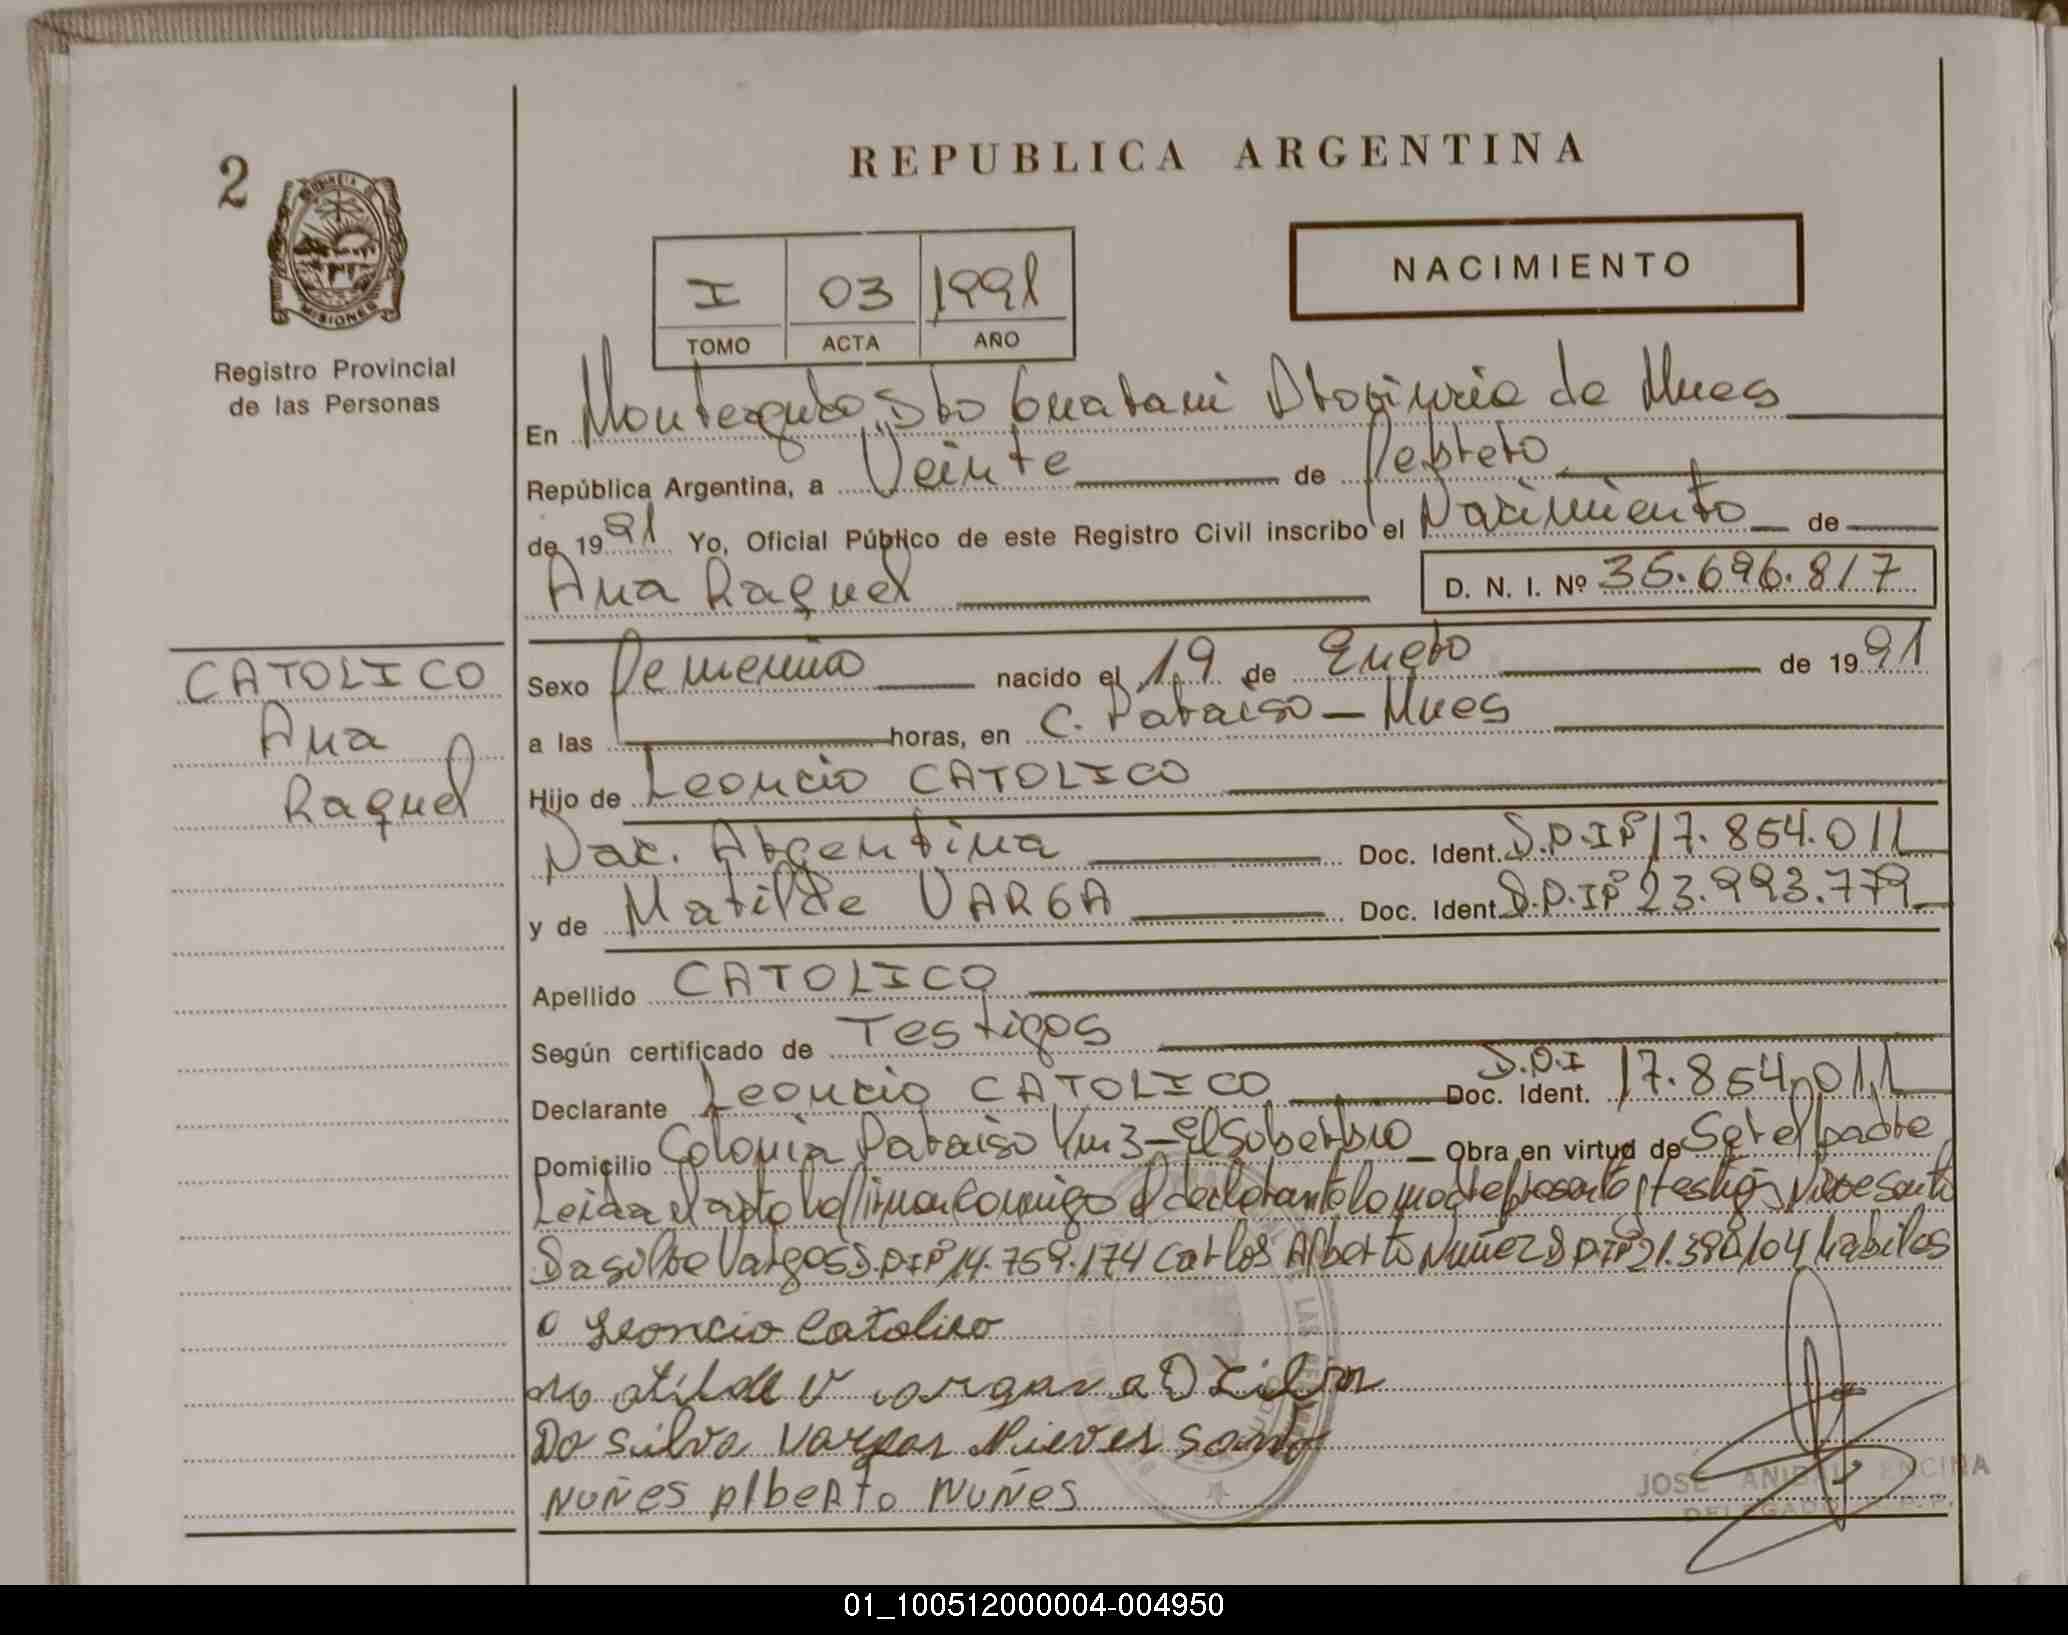 2
PROVINCIA D
MISIONES
Registro Provincial
de las Personas
REPUBLICA ARGENTINA
NACIMIENTO
I 03 1991
TOMO ACTA AÑO
En Monteagudo, Dto Guarani Provincia de Mnes
República Argentina, a Veinte de Febrero
de 1991 Yo, Oficial Público de este Registro Civil inscribo el Nacimiento de
Ana Raquel D. N. I. Nº 35.696.817
CATOLICO
Ana
Raquel
Sexo Femenino nacido el 19 de Enero de 1991
a las horas, en C. Paraiso - Mnes
Hijo de Leoncio CATOLICO
Nac. Argentina Doc. Ident. D.N.I Nº 17.854.011
y de Matilde VARGA Doc. Ident. D.N.I Nº 23.993.779
Apellido CATOLICO
Según certificado de Testigos
Declarante Leoncio CATOLICO Doc. Ident. D.N.I 17.854.011
Domicilio Colonia Paraiso Km 3 - El Soberbio Obra en virtud de Ser el padre
Leida el acta la firman Conmigo el declarante la madre presente testigos
Da silva Vargas D.N.I Nº 14.759.174 Carlos Alberto Nuñez D.N.I Nº habiles
Leoncio Catolico
Da Silva Vargas Nieves
NUÑES AlbeRto NUÑES
JOSE ANIBAL ENCINA
DELEGADO R.P.
01_100512000004-004950